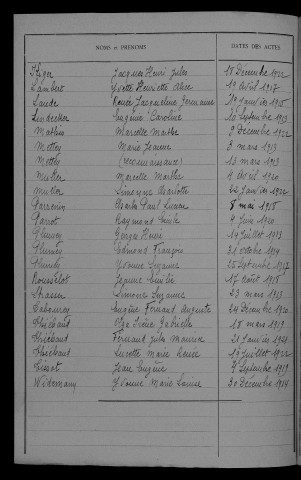 NOMS ET PRÉNOMS DATES DES ACTES
Jacques Henri Jules 15 Décembre 1922
Lambert Yvette Henriette Alice 19 Avril 1917
Laude Renée Jacqueline Germaine 29 Janvier 1915
Lindecker Eugénie Caroline 10 Septembre 1913
Mathis Marcelle Marthe 9 Décembre 1922
Mettey Marie Jeanne 3 mars 1913
Mettey (reconnaissance) 13 mars 1913
Muller Marcelle Marthe 4 Avril 1920
Muller Simonne Charlotte 22 Janvier 1922
Perronin Charles Paul Lucien 8 mai 1915
Parrot Raymond Emile 4 Juin 1920
Plumey Georges Henri 14 Juillet 1913
Plumey Edmond François 31 Octobre 1914
Plumey Yvonne Suzanne 25 Septembre 1917
Rousselot Jeanne Emilie 17 Août 1915
Strasser Simonne Suzanne 23 mars 1913
Eugène Fernand Auguste 24 Décembre 1920
Thiébaud Olga Irène Gabrielle 15 mars 1919
Thiébaud Fernand Jules Maurice 21 Janvier 1921
Thiébaud Lucette Marie Renée 19 Juillet 1922
Tissot Jean Eugène 9 Septembre 1919
Widemany Yvonne Marie Louise 30 Décembre 1914